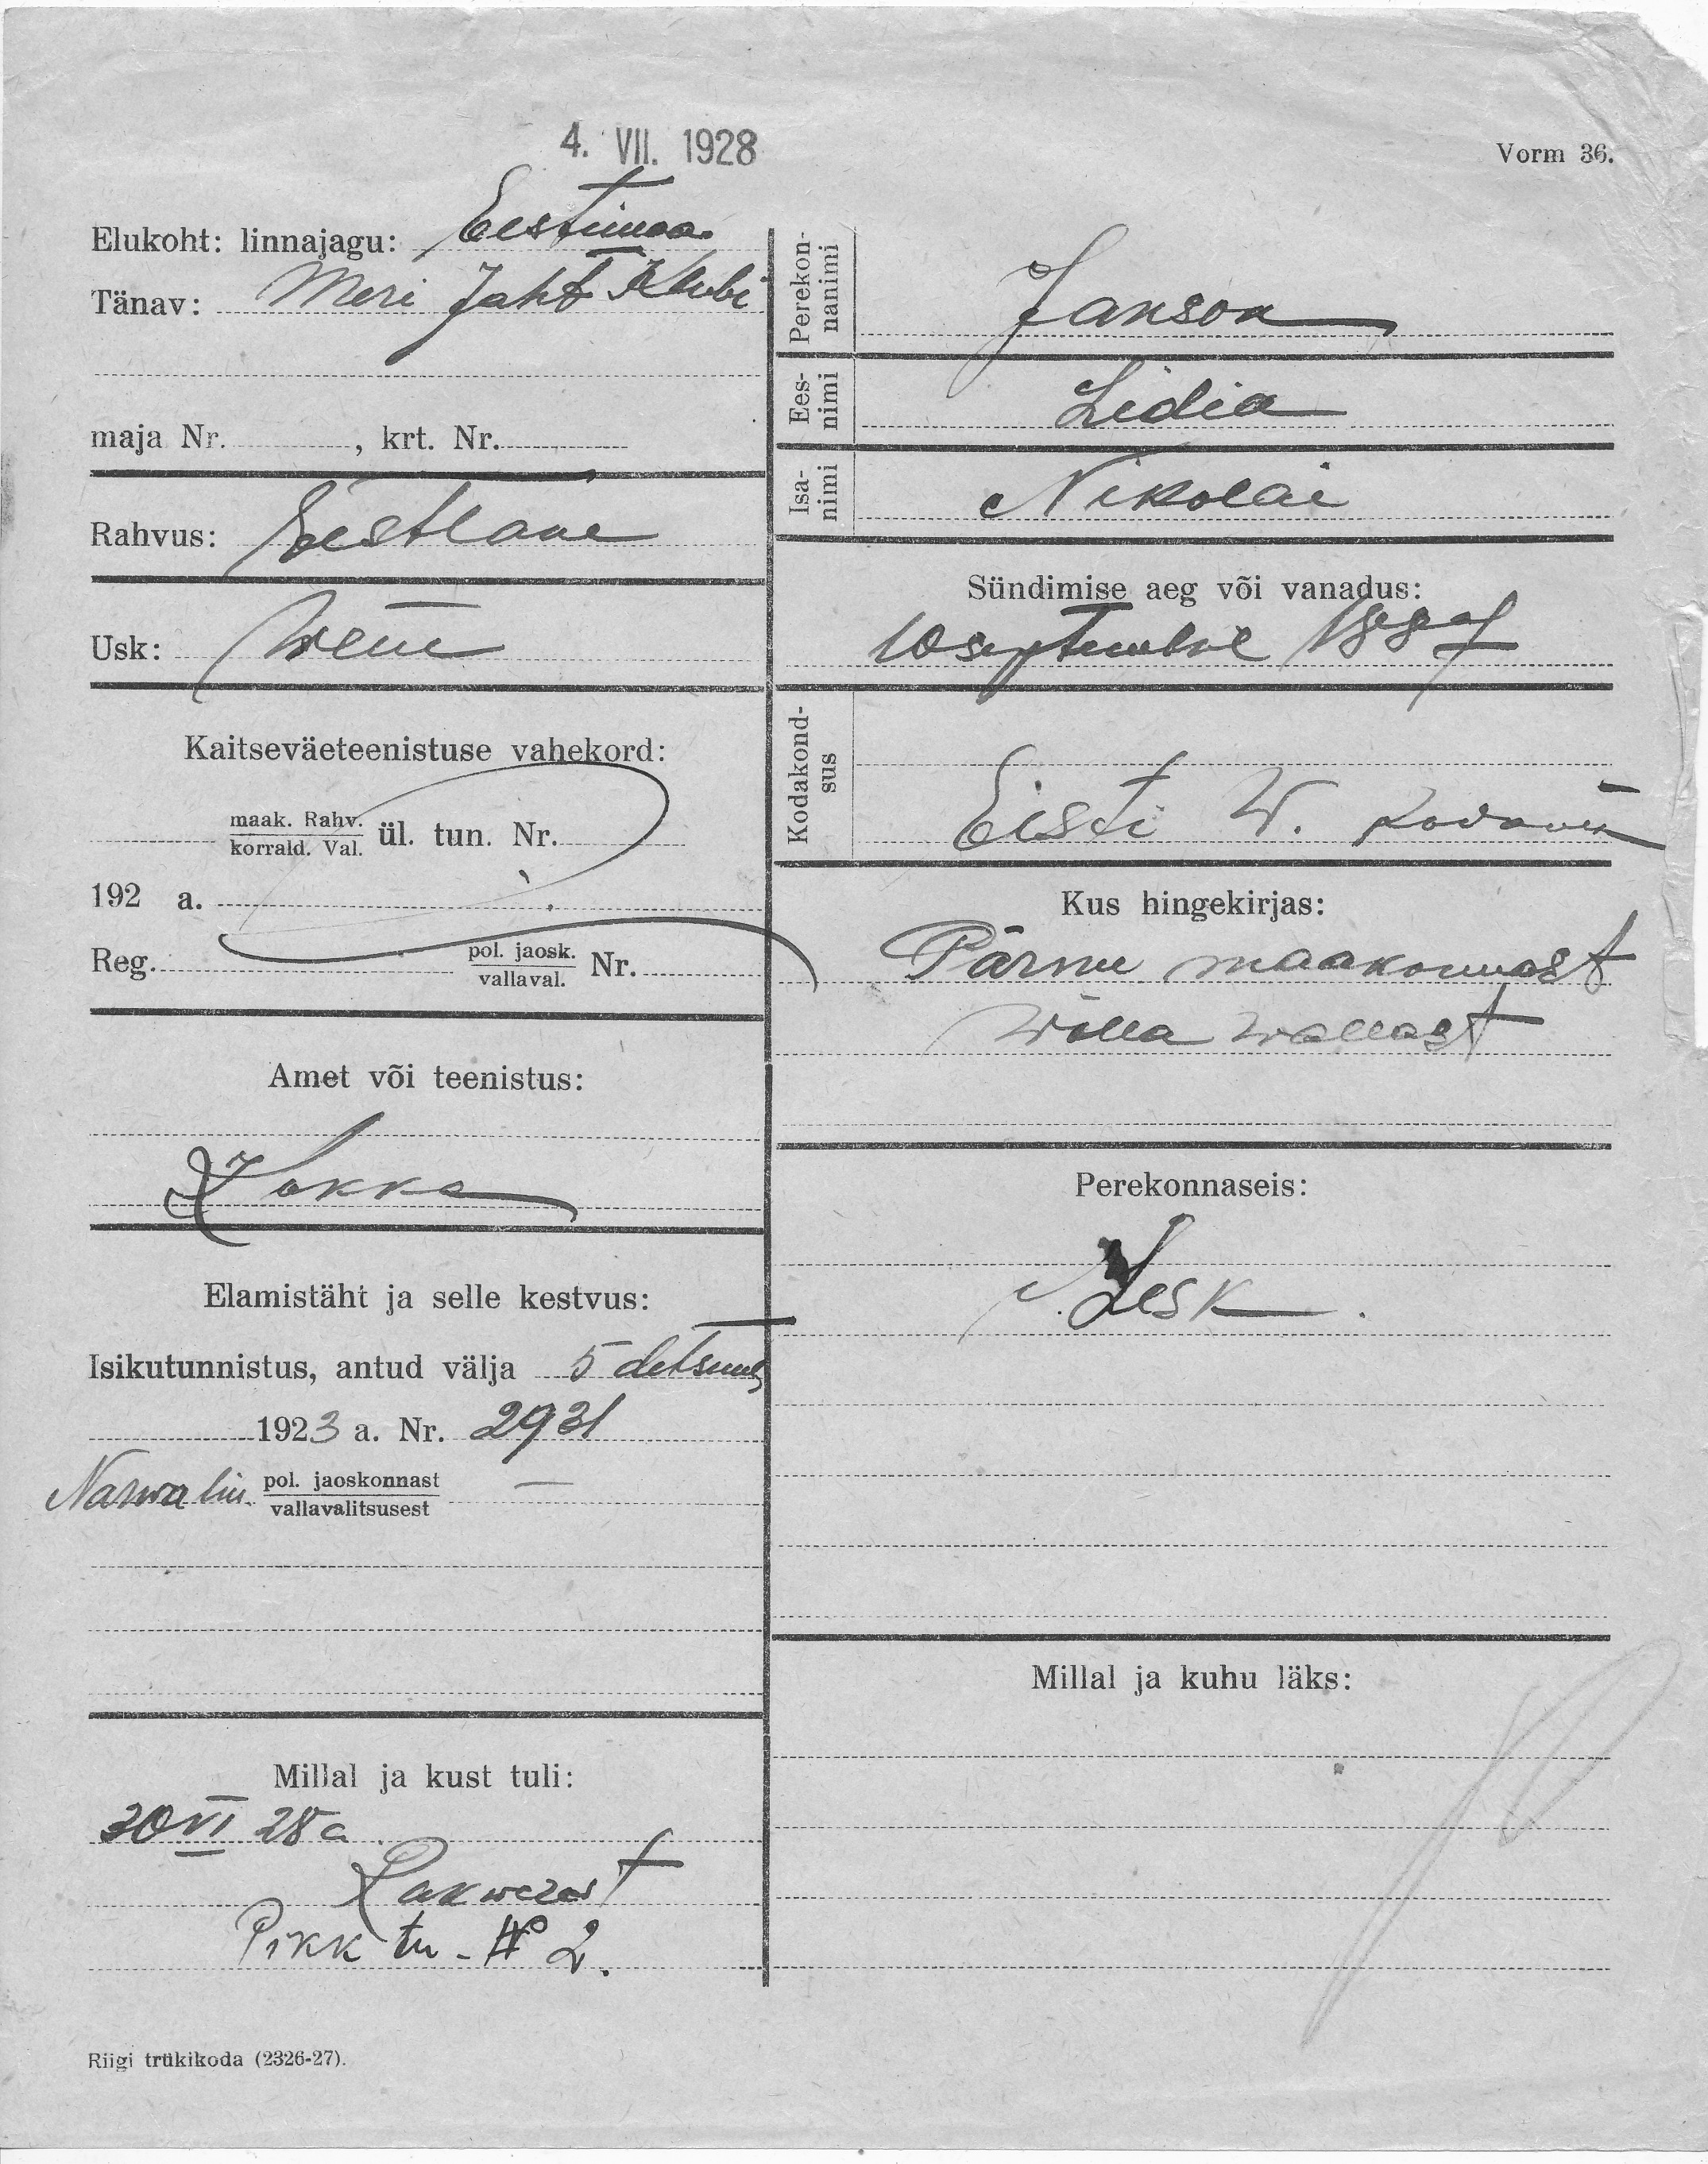 4. VII. 1928
Vorm 36.
Elukoht: linnajagu: Eestimaa
Tänav: Meri Jaht Klubi
maja Nr. , krt. Nr.
Rahvus: Eestlane
Usk: Wene
Kaitseväeteenistuse vahekord:
maak. Rahv.
korrald. Val. ül. tun. Nr.
192 a.
Reg. pol. jaosk.
vallaval. Nr.
Amet või teenistus:
Kokka
Elamistäht ja selle kestvus:
Isikutunnistus, antud välja 5 detsemb
1923 a. Nr. 2931
Narva lin. pol. jaoskonnast
vallavalitsusest —
Millal ja kust tuli:
30 VI 28 a
Rakverest
Pikk tn - № 2.
Perekon-
nanimi
Janson
Ees-
nimi
Lidia
Isa-
nimi
Nikolai
Sündimise aeg või vanadus:
10 septembre 1887
Kodakond-
sus
Eisti W.
Kus hingekirjas:
Pärnu maakonnast
Wallast
Perekonnaseis:
Lesk.
Millal ja kuhu läks:
Riigi trükikoda (2326-27).